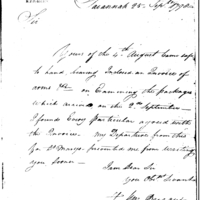 Savannah 28. Sept. 1792
Sir
Yours of the 4th August Came safe
to hand, having Inclosed an Invoice of
some on Examining the packages
which arrived on the 2nd September
I found Every Particular agreed with
the Invoice. My Departure from this
for St. Marys, prevented me from writing
you sooner
I am Dear Sir
you Obt. Servant